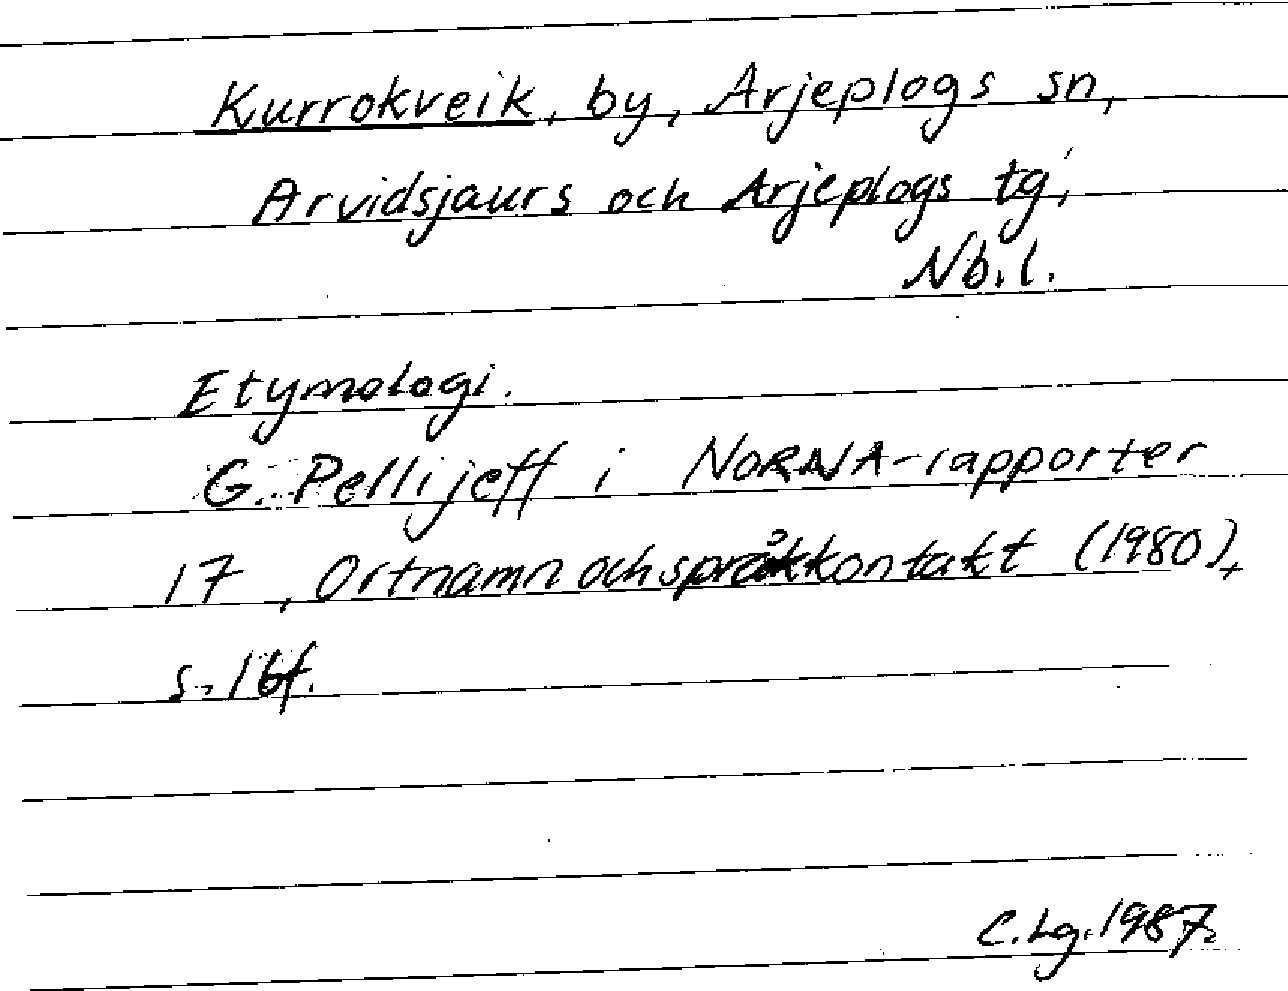 Kurrokveik, by, Arjeplogs sn,
Arvidsjaurs och Arjeplogs tg,
Nb.l.
Etymologi.
G. Pellijeff i NORNA-rapporter
17, Ortnamn och språkkontakt (1980),
s. 16f.
C.Lg.1987.